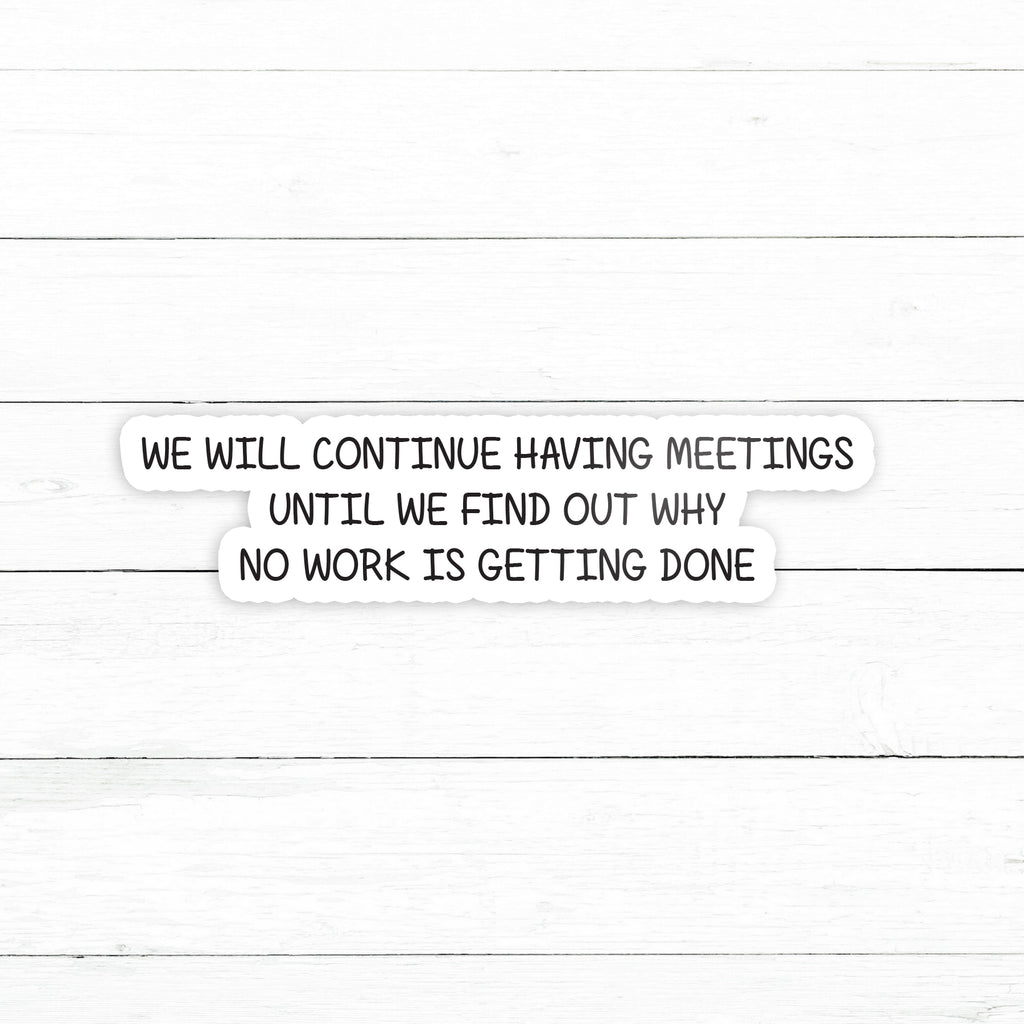 WE WILL CONTINUE HAVING MEETINGS
UNTIL WE FIND OUT WHY
NO WORK IS GETTING DONE